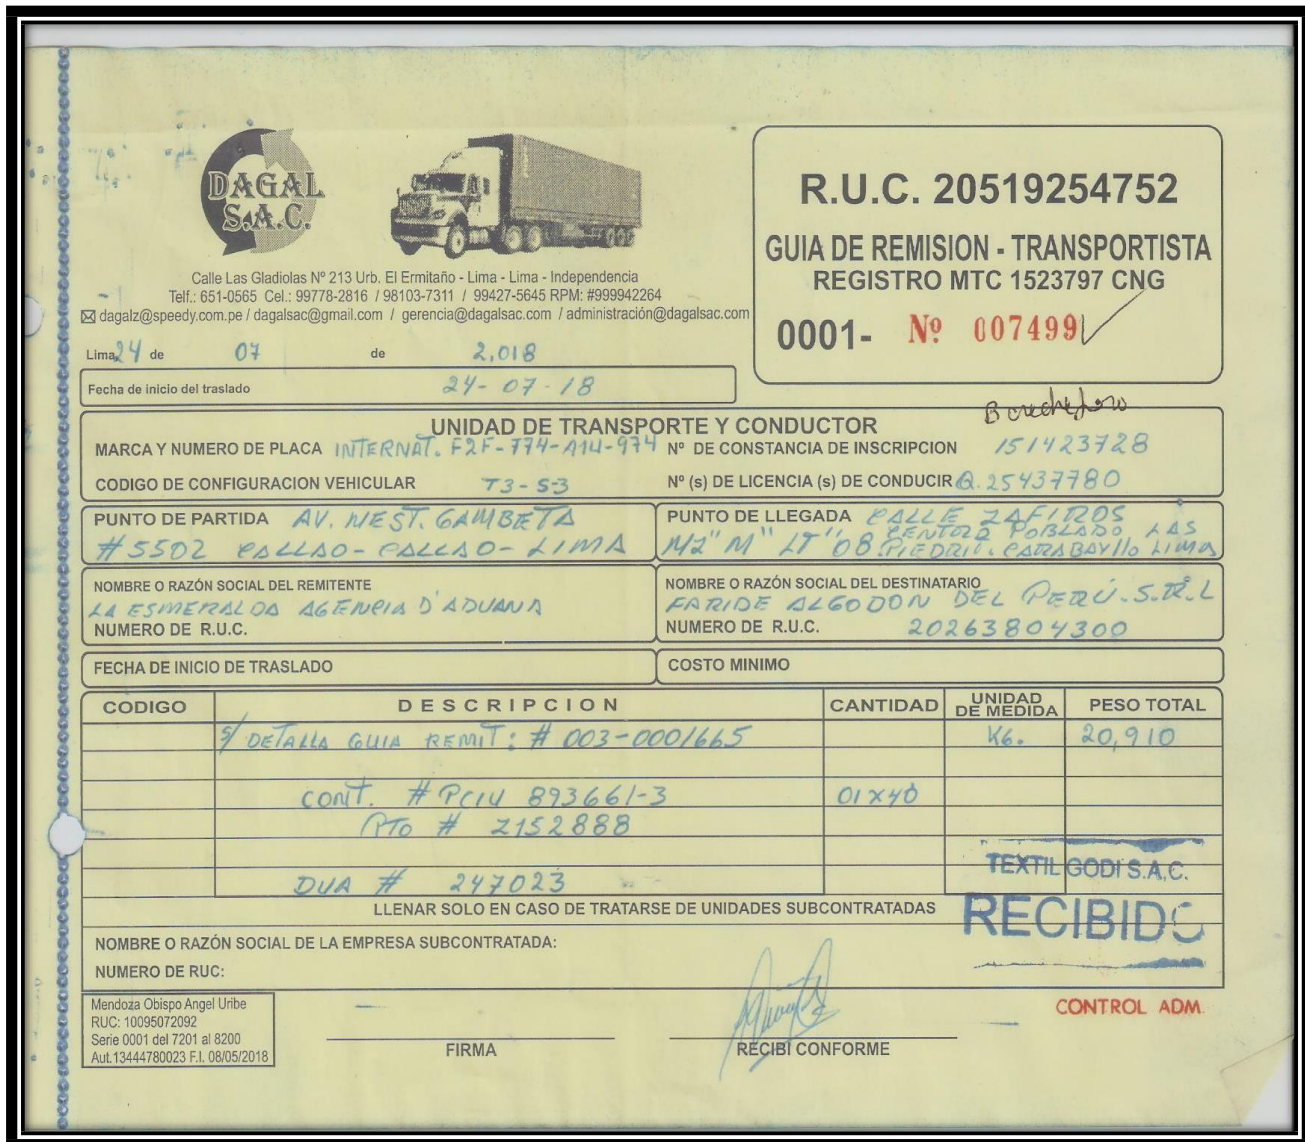 DAGAL
S.A.C.
Calle Las Gladiolas Nº 213 Urb. El Ermitaño - Lima - Lima - Independencia
Telf.: 651-0565 Cel.: 99778-2816 / 98103-7311 / 99427-5645 RPM: #999942264
dagalz@speedy.com.pe / dagalsac@gmail.com / gerencia@dagalsac.com / administración@dagalsac.com
R.U.C. 20519254752
GUIA DE REMISION - TRANSPORTISTA
REGISTRO MTC 1523797 CNG
0001- Nº 007499
Lima, 24 de 07 de 2,018
Fecha de inicio del traslado 24-07-18
UNIDAD DE TRANSPORTE Y CONDUCTOR
MARCA Y NUMERO DE PLACA INTERNAT. F2F-774-A14-974
Nº DE CONSTANCIA DE INSCRIPCION 151423728
CODIGO DE CONFIGURACION VEHICULAR T3-S3
Nº (s) DE LICENCIA (s) DE CONDUCIR Q.25437780
PUNTO DE PARTIDA AV. NEST. GAMBETA
#5502 CALLAO-CALLAO-LIMA
PUNTO DE LLEGADA CALLE ZAFIROS
MZ"M" LT"08 CENTRO POBLADO LAS
PIEDRI. CARABAYllo LIMA
NOMBRE O RAZÓN SOCIAL DEL REMITENTE
LA ESMERALDA AGENCIA D'ADUANA
NUMERO DE R.U.C.
NOMBRE O RAZÓN SOCIAL DEL DESTINATARIO
FARIDE ALGODON DEL PERÚ.S.R.L
NUMERO DE R.U.C. 20263804300
FECHA DE INICIO DE TRASLADO
COSTO MINIMO
CODIGO DESCRIPCION CANTIDAD UNIDAD DE MEDIDA PESO TOTAL
S/ DETALLA GUIA REMIT: # 003-0001665 KG. 20,910
CONT. # PCIU 893661-3 01X40
PTO # Z152888
DUA # 247023
TEXTIL GODI S.A.C.
RECIBIDO
LLENAR SOLO EN CASO DE TRATARSE DE UNIDADES SUBCONTRATADAS
NOMBRE O RAZÓN SOCIAL DE LA EMPRESA SUBCONTRATADA:
NUMERO DE RUC:
CONTROL ADM.
Mendoza Obispo Angel Uribe
RUC: 10095072092
Serie 0001 del 7201 al 8200
Aut.13444780023 F.I. 08/05/2018
FIRMA
RECIBI CONFORME